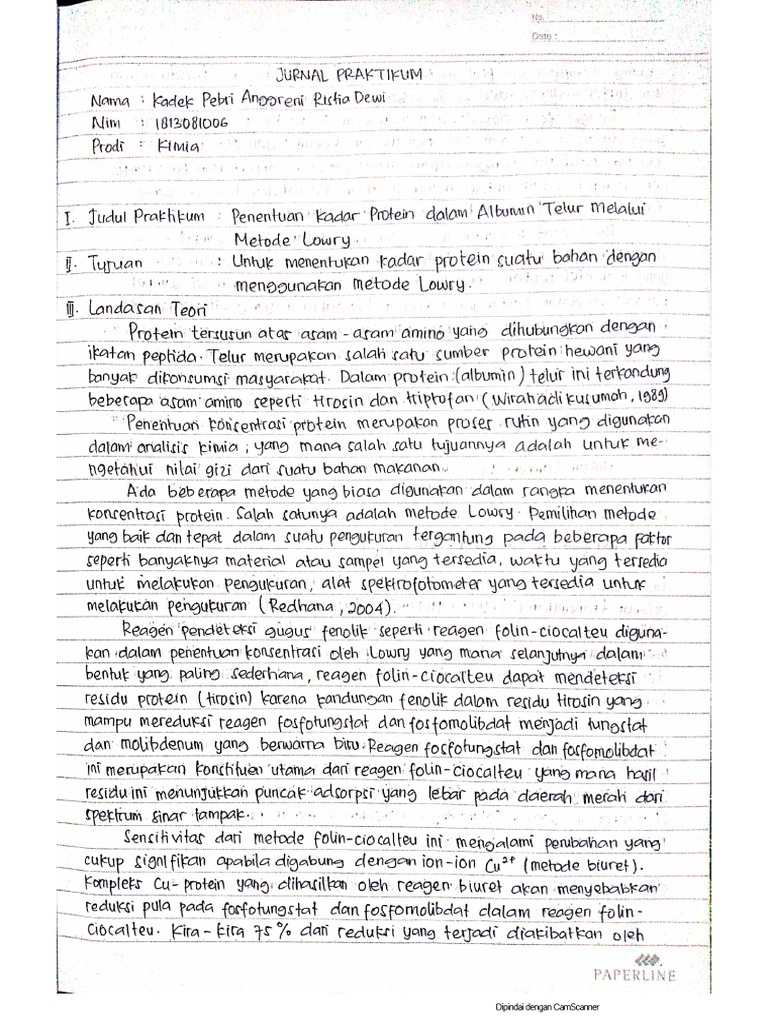 No.
Date :
JURNAL PRAKTIKUM
Nama : Kadek Pebri Anggreni Ristia Dewi
Nim : 1813081006
Prodi : Kimia
I. Judul Praktikum : Penentuan Kadar Protein dalam Albumin Telur Melalui
Metode Lowry.
II. Tujuan : Untuk menentukan kadar protein suatu bahan dengan
menggunakan metode Lowry.
III. Landasan Teori
Protein tersusun atas asam-asam amino yang dihubungkan dengan
ikatan peptida. Telur merupakan salah satu sumber protein hewani yang
banyak dikonsumsi masyarakat. Dalam protein (albumin) telur ini terkandung
beberapa asam amino seperti tirosin dan triptofan (Wirahadikusumah, 1989)
Penentuan konsentrasi protein merupakan proses rutin yang digunakan
dalam analisis kimia, yang mana salah satu tujuannya adalah untuk me-
ngetahui nilai gizi dari suatu bahan makanan.
Ada beberapa metode yang biasa digunakan dalam rangka menentukan
konsentrasi protein. Salah satunya adalah metode Lowry. Pemilihan metode
yang baik dan tepat dalam suatu pengukuran tergantung pada beberapa faktor
seperti banyaknya material atau sampel yang tersedia, waktu yang tersedia
untuk melakukan pengukuran, alat spektrofotometer yang tersedia untuk
melakukan pengukuran (Redhana, 2004).
Reagen pendeteksi gugus fenolik seperti reagen folin-ciocalteu diguna-
kan dalam penentuan konsentrasi oleh Lowry yang mana selanjutnya dalam
bentuk yang paling sederhana, reagen folin-ciocalteu dapat mendeteksi
residu protein (tirosin) karena kandungan fenolik dalam residu tirosin yang
mampu mereduksi reagen fosfotungstat dan fosfomolibdat menjadi tungstat
dan molibdenum yang berwarna biru. Reagen fosfotungstat dan fosfomolibdat
ini merupakan konstituen utama dari reagen folin-ciocalteu yang mana hasil
residu ini menunjukkan puncak adsorpsi yang lebar pada daerah merah dari
spektrum sinar tampak.
Sensitivitas dari metode folin-ciocalteu ini mengalami perubahan yang
cukup signifikan apabila digabung dengan ion-ion Cu²⁺ (metode biuret).
Kompleks Cu-protein yang dihasilkan oleh reagen biuret akan menyebabkan
reduksi pula pada fosfotungstat dan fosfomolibdat dalam reagen folin-
ciocalteu. Kira-kira 75% dari reduksi yang terjadi diakibatkan oleh
PAPERLINE
Dipindai dengan CamScanner